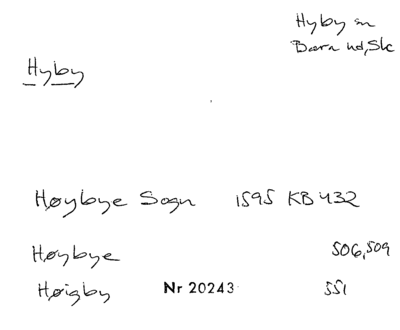 Hyby sn
Bara hd, Sk
Hyby
Høybye Sogn 1595 KB 432
Høybye 506, 509
Høigby Nr 20243 551